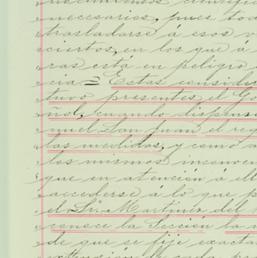 necesarios, pues tod
trasladarse á esos v
ciertos, en los que á
ras está en peligro
cia = Estas consider
tuvo presentes el Go
ñol, cuando dispens
nuel Don Juan el re
las medidas, y como á
los mismos inconve
que en atención á el
accederse á lo que p
el Sr. Martinez del
conoce la Seccion la n
de que se fije exacta